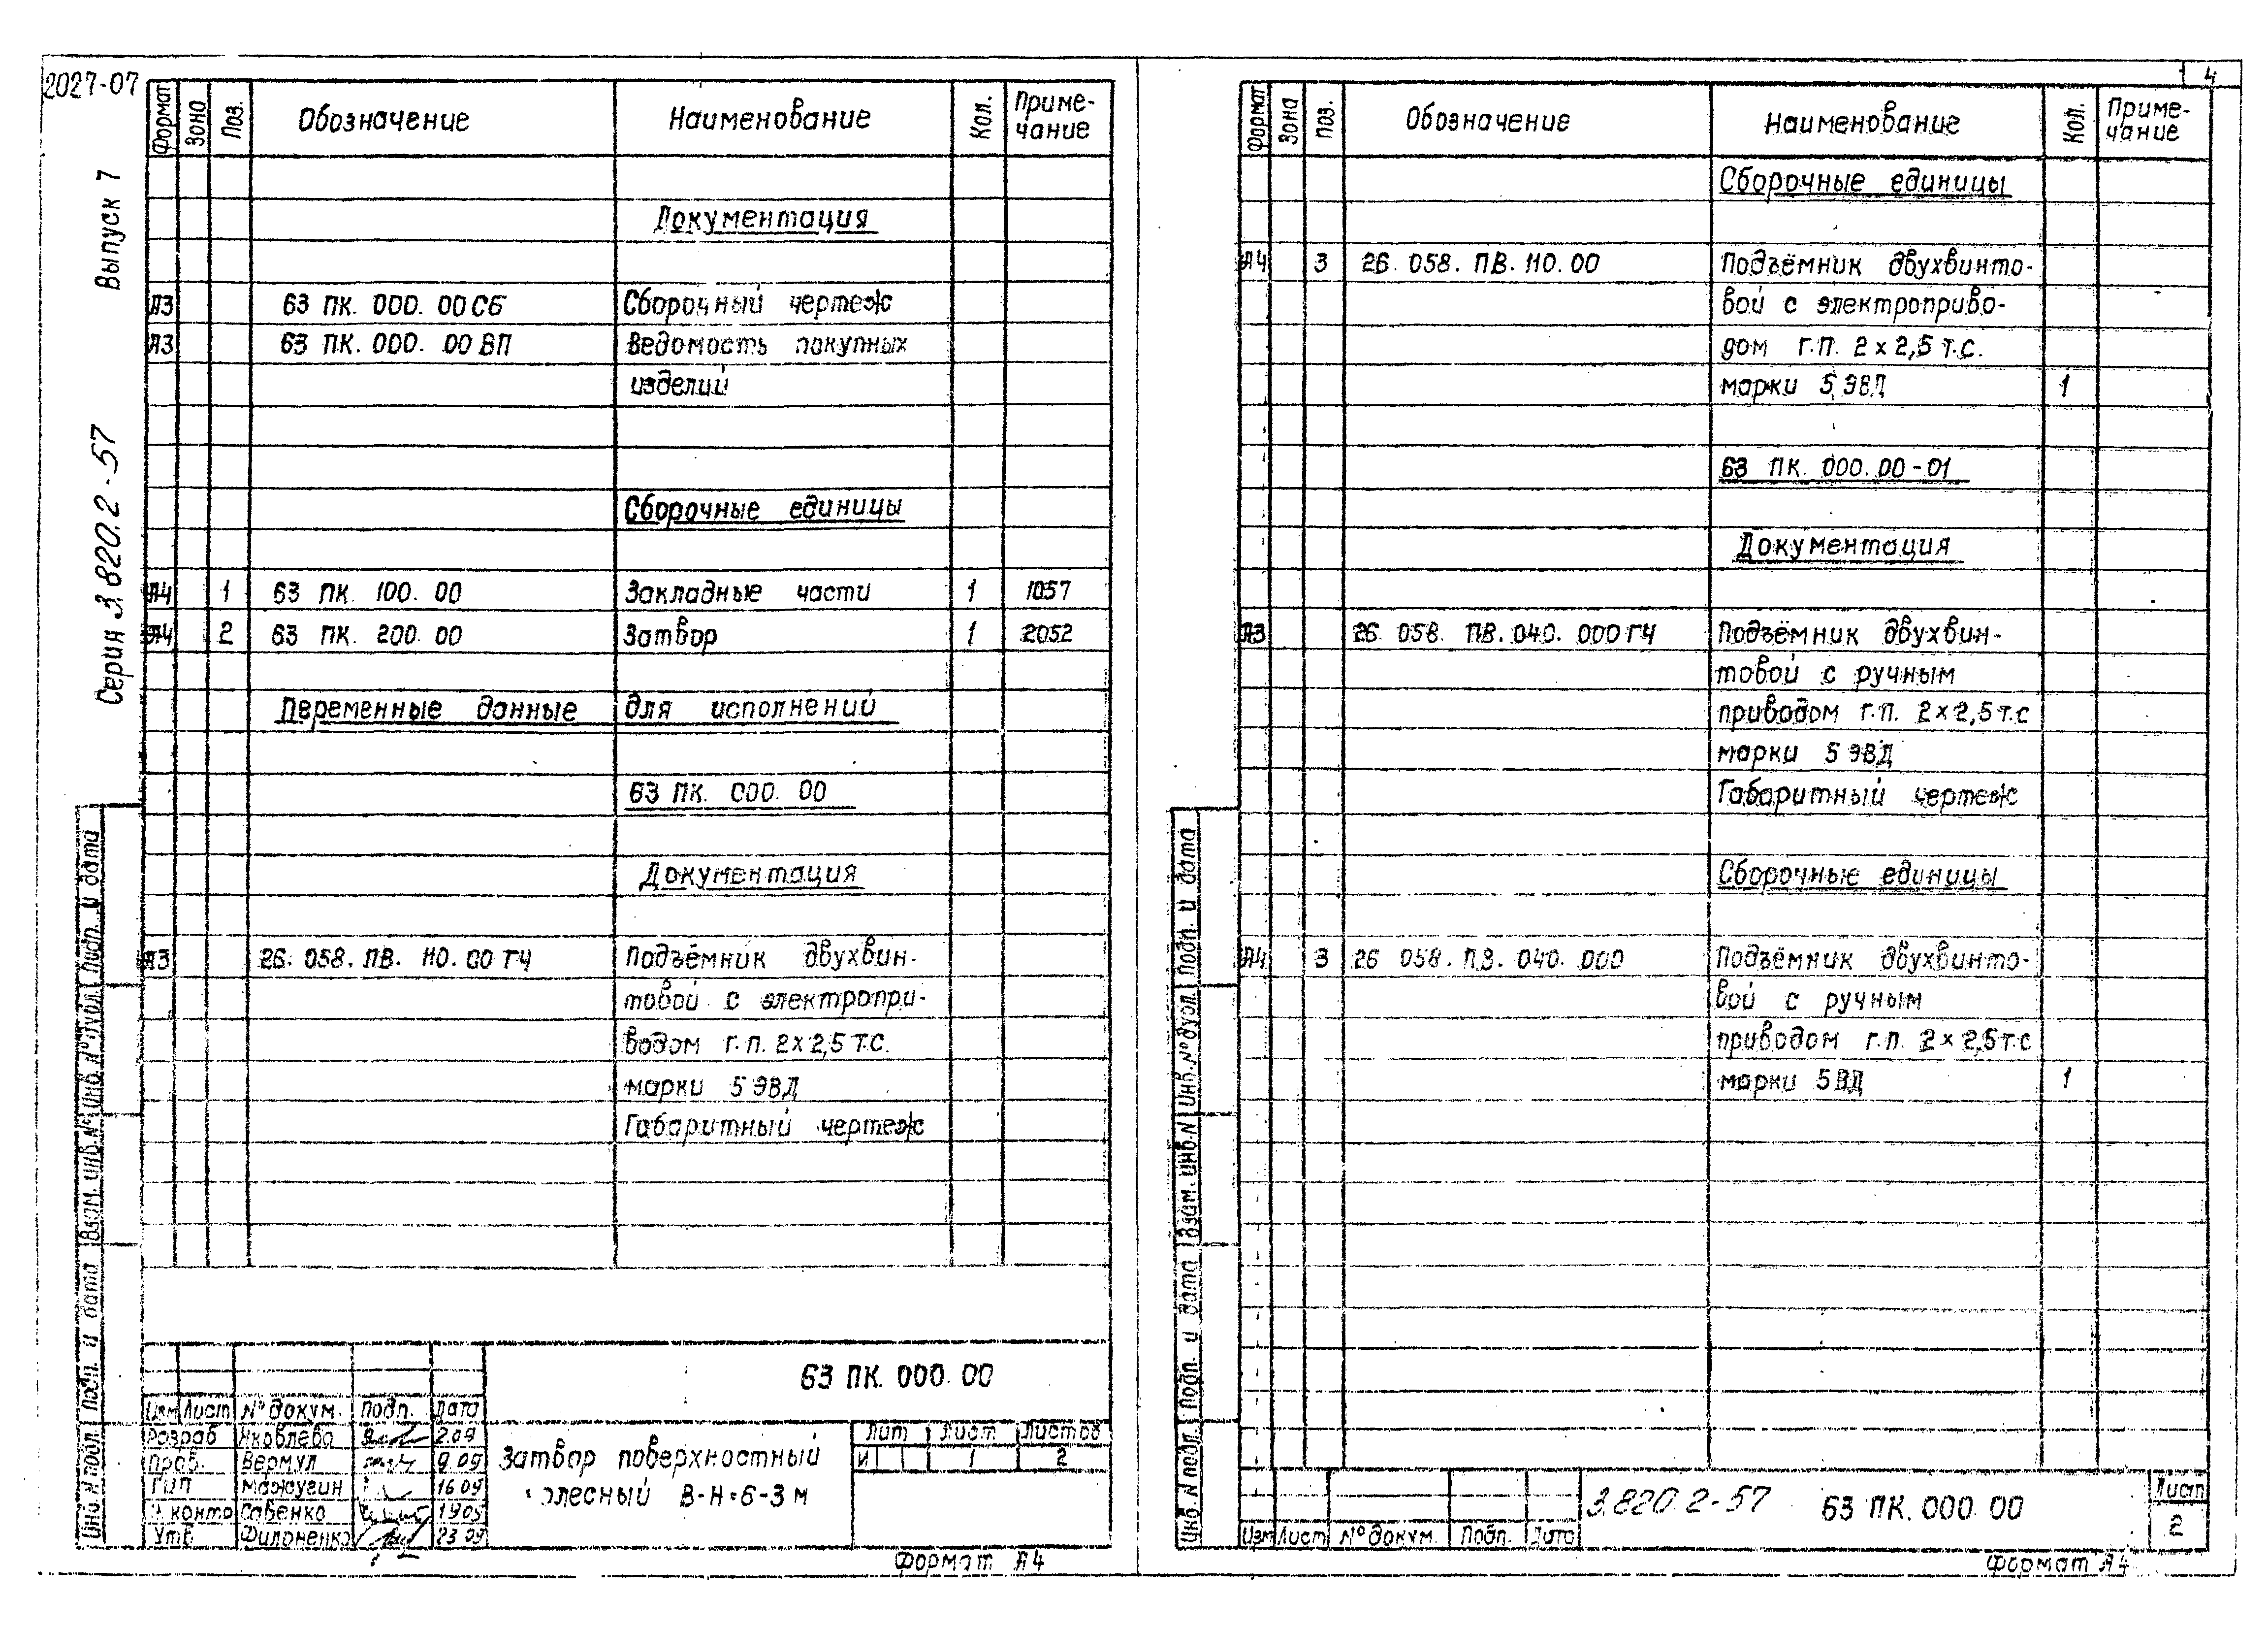 2027-07
Серия 3.820.2-57 Выпуск 7
Формат Зона Поз. Обозначение Наименование Кол. Приме-
чание
Документация
А3 63 ПК. 000. 00 СБ Сборочный чертеж
А3 63 ПК. 000. 00 ВП Ведомость покупных
изделий
Сборочные единицы
А4 1 63 ПК. 100. 00 Закладные части 1 1057
А4 2 63 ПК. 200. 00 Затвор 1 2052
Переменные данные для исполнений
63 ПК. 000. 00
Документация
А3 26. 058. ПВ. 110. 00 ГЧ Подъёмник двухвин-
товой с электропри-
водом г.п. 2х2,5 т.с.
марки 5 ЭВД
Габаритный чертеж
Инв. N подл. Подп. и дата Взам. инв. № Инв. № дубл. Подп. и дата
63 ПК. 000. 00
Изм Лист № докум. Подп. Дата
Разраб Яковлева 2.09
Пров. Вермул 9.09
ГИП Мажугин 16.09
контр Савенко
Утв. Филоненко 23 09
Затвор поверхностный
В-Н=6-3 м
Лит Лист Листов
И 1 2
Формат А4
4
Формат Зона Поз. Обозначение Наименование Кол. Приме-
чание
Сборочные единицы
А4 3 26. 058. ПВ. 110. 00 Подъёмник двухвинто-
вой с электроприво-
дом г.п. 2 х 2,5 т.с.
марки 5 ЭВД 1
63 ПК. 000. 00-01
Документация
А3 26. 058. ПВ. 040. 000 ГЧ Подъёмник двухвин-
товой с ручным
приводом г.п. 2х2,5 т.с
марки 5 ЭВД
Габаритный чертеж
Сборочные единицы
А4 3 26 058. ПВ. 040. 000 Подъёмник двухвинто-
вой с ручным
приводом г.п. 2х2,5 т.с
марки 5ВД 1
Инв. N подл. Подп. и дата Взам. инв. N Инв. № дубл. Подп. и дата
Изм Лист № докум. Подп. Дата
3.820.2-57 63 ПК. 000. 00
Лист
2
Формат А4